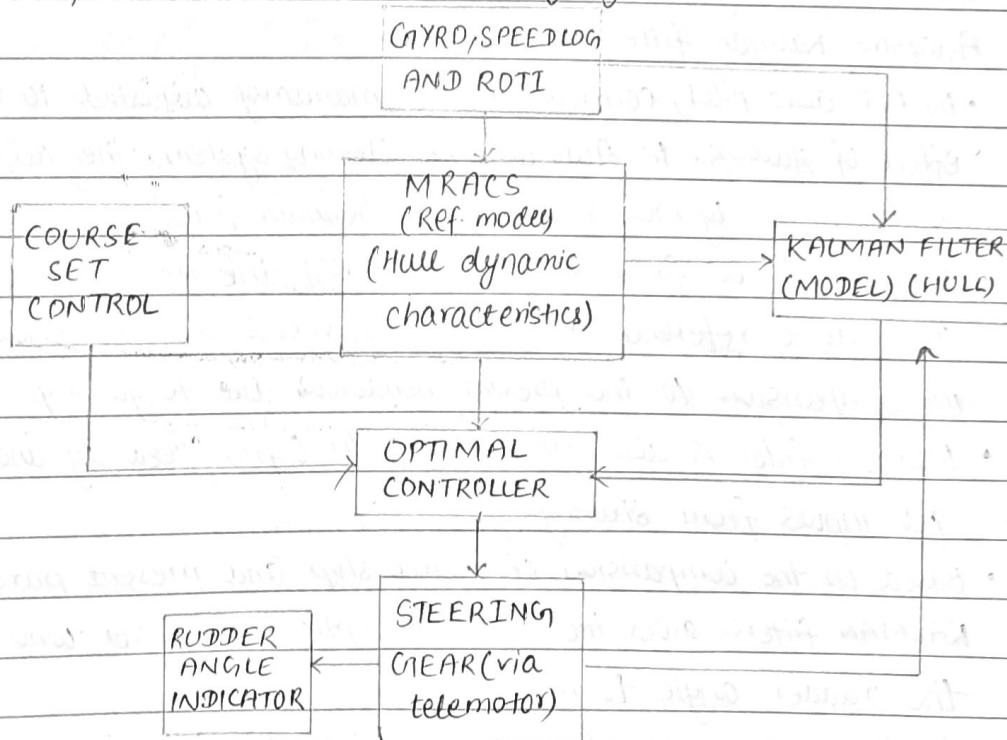 GYRO, SPEEDLOG
AND ROTI
MRACS
(Ref. model)
(Hull dynamic
characteristics)
COURSE
SET
CONTROL
KALMAN FILTER
(MODEL) (HULL)
OPTIMAL
CONTROLLER
STEERING
GEAR (via
telemotor)
RUDDER
ANGLE
INDICATOR